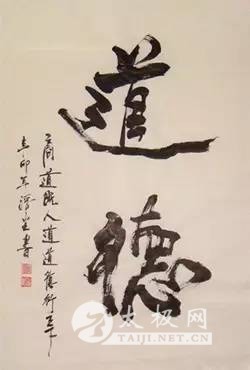 道德
商道人道道行
卯年書
太极网
TAIJI.NET.CN